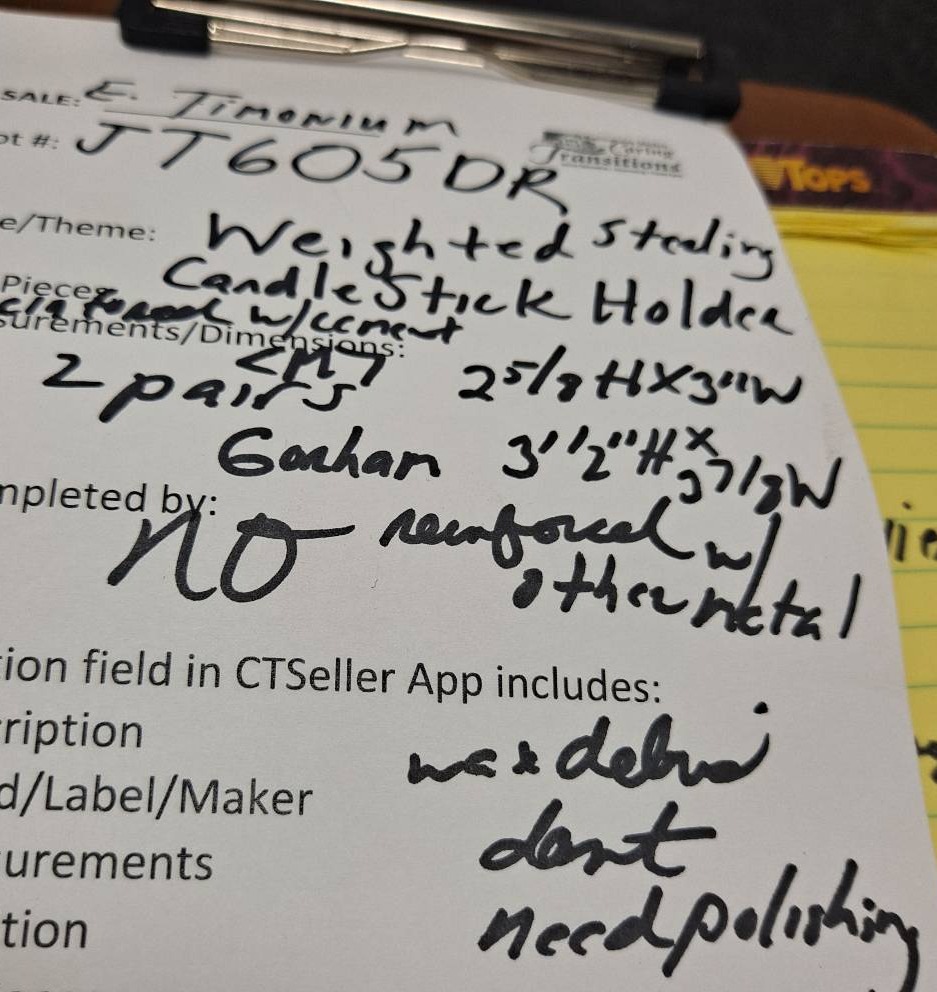 SALE: E. Timonium
ot #: JT605DR
Caring
Transitions
TOPS
e/Theme: Weighted Sterling
Pieces CandleStick Holder
w/cement
urements/Dimensions:
2 pairs 2 5/8 H X 3" W
Gorham 3 1/2" H x 3 7/8 W
mpleted by:
NO reinforced w/
other metal
tion field in CTSeller App includes:
ription
wax debris
d/Label/Maker
dent
urements
tion
need polishing